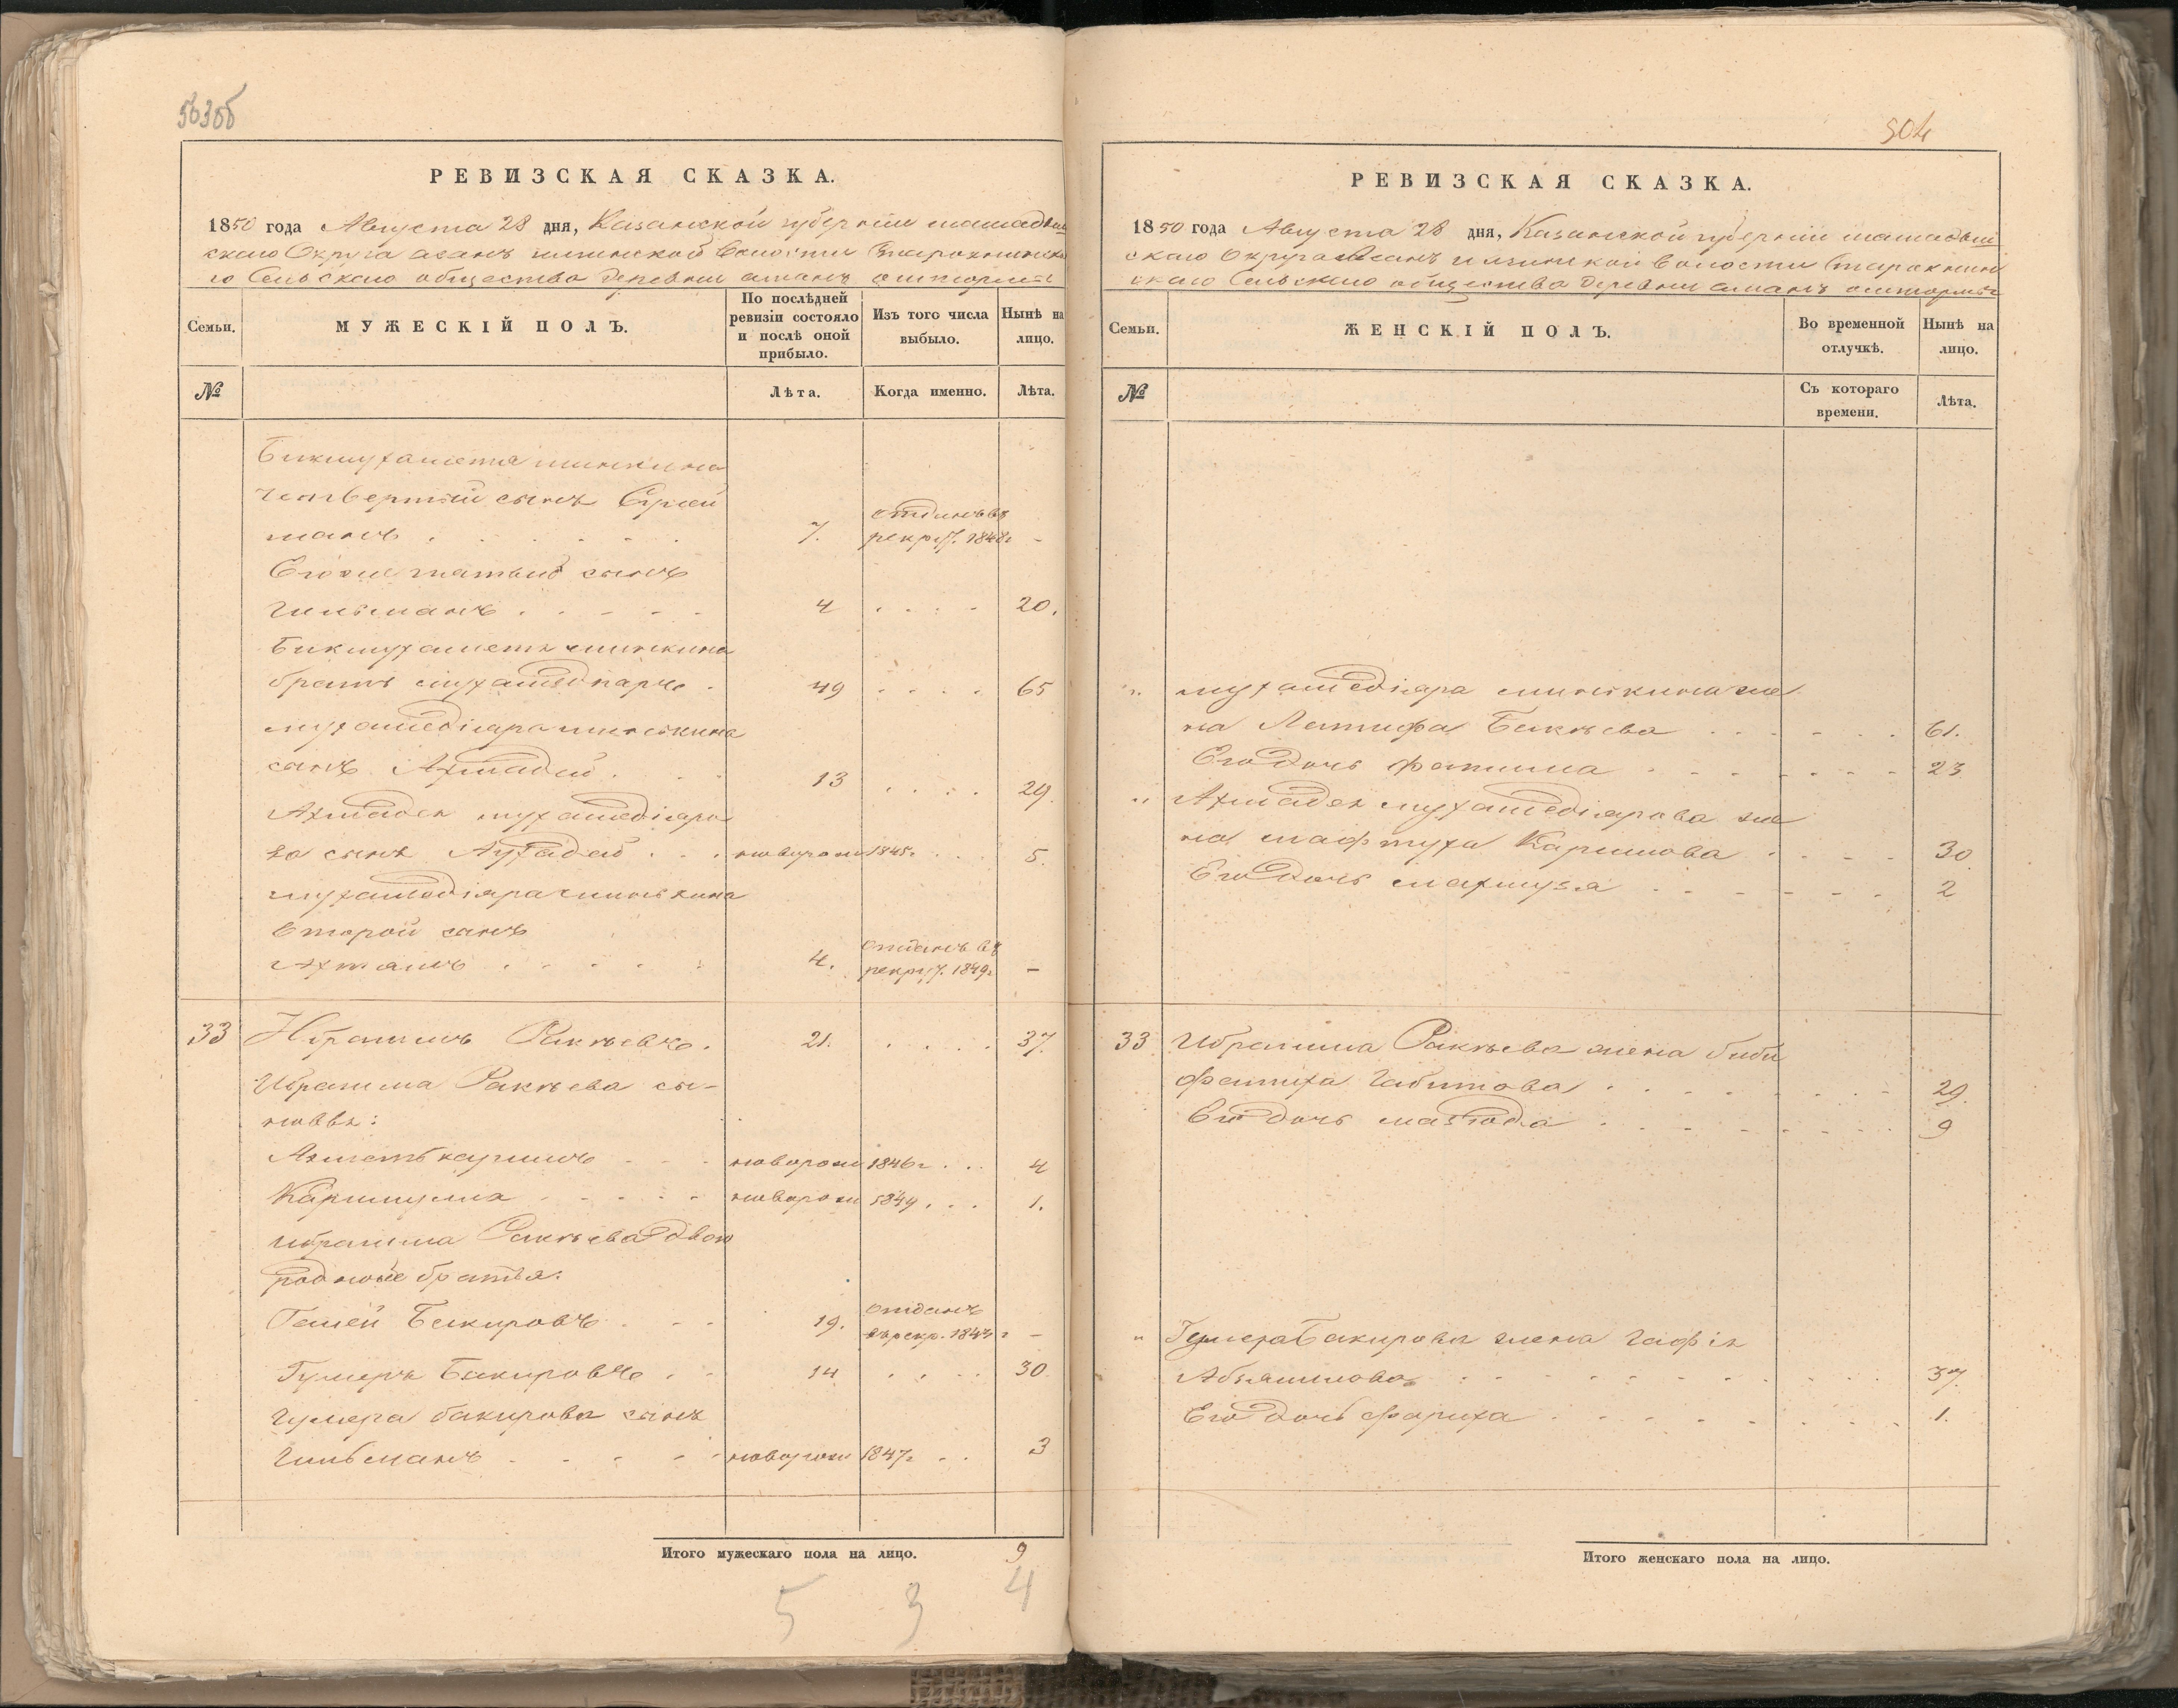 503об
РЕВИЗСКАЯ СКАЗКА.
1850 года Августа 28 дня, Казанской губернiи мамадыш
скаго Округа асанъ илгинской Волости
го Сельскаго общества деревни
Семьи.
МУЖЕСКІЙ ПОЛЪ.
По послѣдней ревизіи состояло и послѣ оной прибыло.
Изъ того числа выбыло.
Нынѣ на лицо.
№
Лѣта.
Когда именно.
Лѣта.
Бикмухамета
четвертый сынъ Сулей
манъ 7. отданъ въ рекруты. 1848г -
Его же пятый сынъ
Гильманъ 4 20.
Бикмухамета
братъ мухамедьяръ 49 65
мухамедіяра
сынъ Ахмадей 13 29.
Ахмадея мухамедіяро
ва сынъ Лутфадей новорожд 1845г. 5.
мухамедіяра
второй сынъ
Ахтямъ 4. отданъ въ рекрут. 1849г -
33 Ибрагимъ Ракаевъ. 21. 37.
Ибрагима Ракаева сы-
новья:
Ахметькаримъ новорож 1846г 4
Каримулла новорож 1849 1.
Ибрагима Ракаева двою
родные братья:
Галей Бакировъ 19. отданъ въ рекр. 184 г -
Гумеръ Бакировъ 14 30
Гумера бакирова сынъ
Гильманъ новорож 1847г 3
Итого мужескаго пола на лицо. 9
5 3 4
504
РЕВИЗСКАЯ СКАЗКА.
1850 года Августа 28 дня, Казанской губернiи мамадыш
скаго Округа Асанъ илгинской волости
скаго Сельскаго общества деревни
Семьи.
ЖЕНСКІЙ ПОЛЪ.
Во временной отлучкѣ.
Нынѣ на лицо.
№
Съ котораго времени.
Лѣта.
" мухамедіяра же
на Латифа Бикѣева 61.
Его дочь фатима 23
" Ахмадея мухамедіярова же
на мафтуха Каримова 30
Его дочь махмуза 2
33 Ибрагима Ракаева жена биби
фатиха Габитова 29.
Его дочь 9
" Гумера Бакирова жена гафія
37.
Его дочь фариха 1.
Итого женскаго пола на лицо.